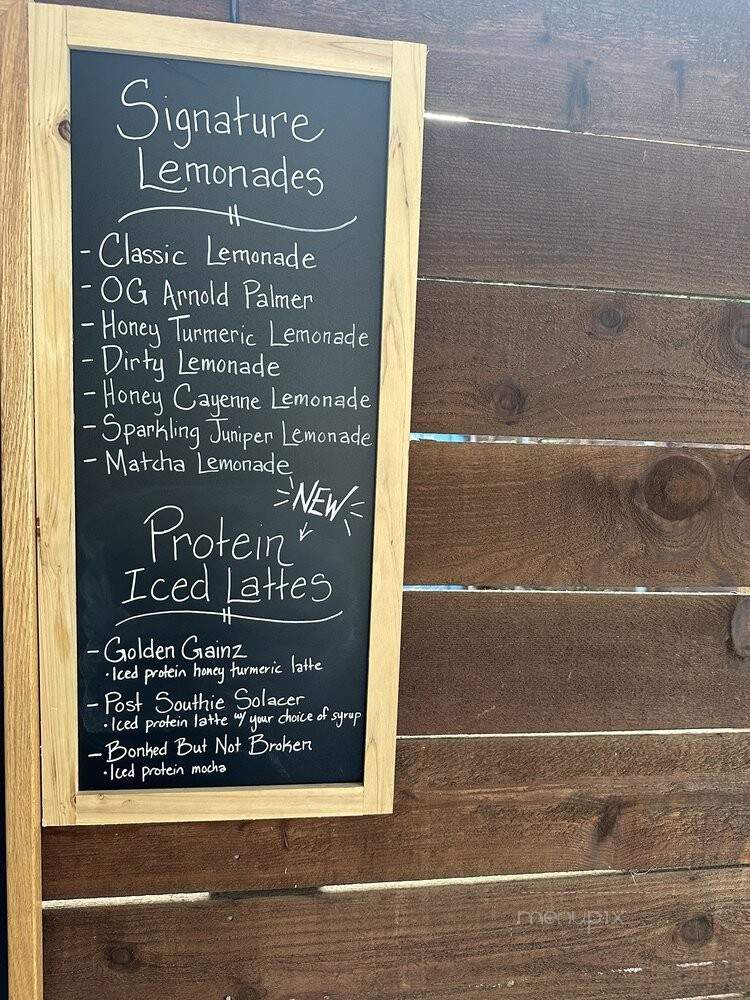 Signature
Lemonades
- Classic Lemonade
- OG Arnold Palmer
- Honey Turmeric Lemonade
- Dirty Lemonade
- Honey Cayenne Lemonade
- Sparkling Juniper Lemonade
- Matcha Lemonade
NEW
Protein
Iced Lattes
- Golden Gainz
• Iced protein honey turmeric latte
- Post Southie Solacer
• Iced protein latte w/ your choice of syrup
- Bonked But Not Broken
• Iced protein mocha
menupix